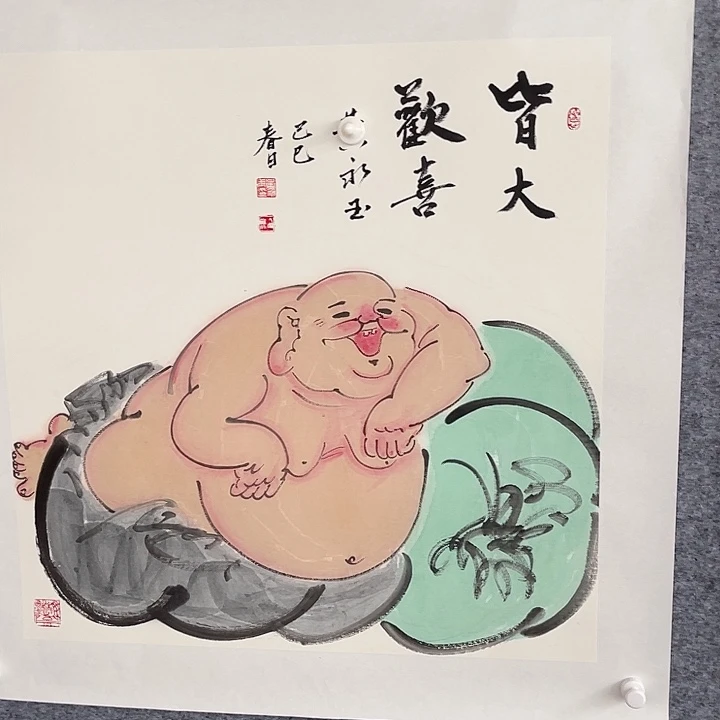 皆大
歡喜
黃永玉
己巳
春日